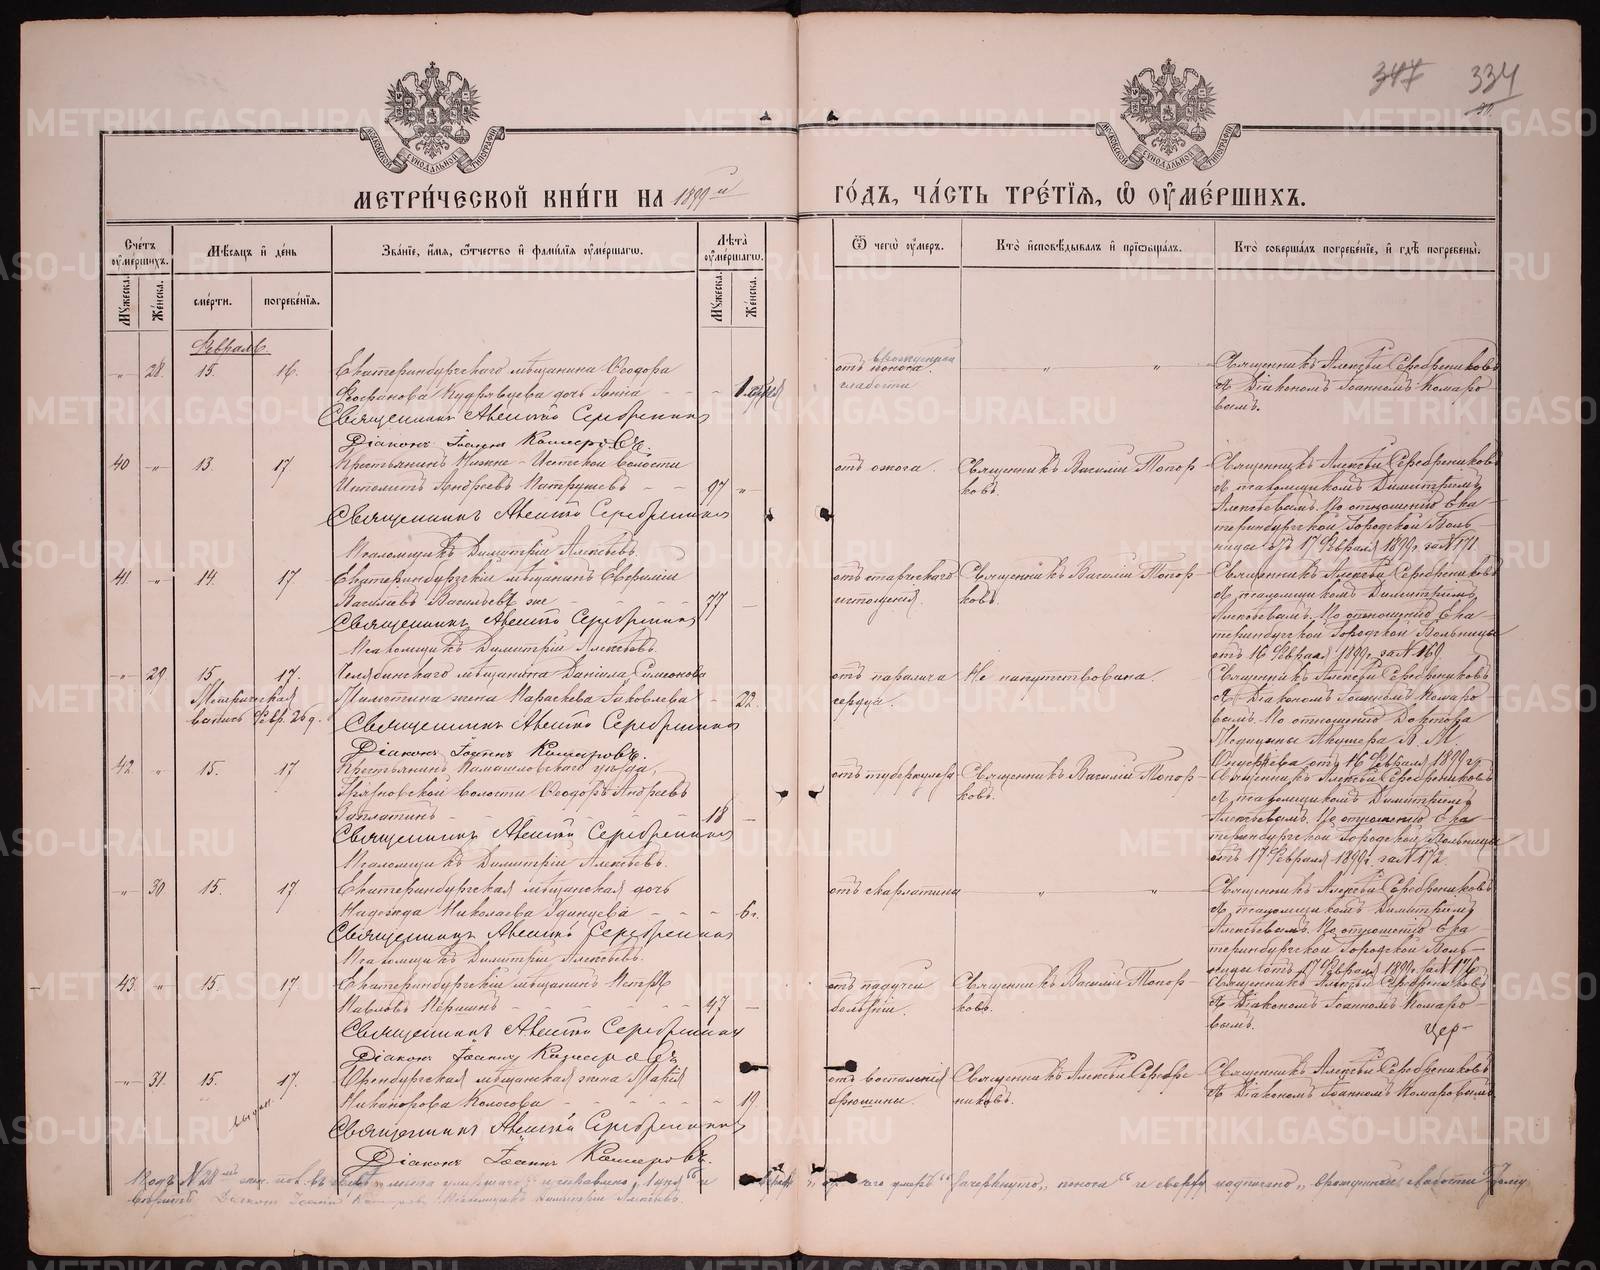 347 334
МЕТРИ́ЧЕСКОЙ КНИ́ГИ НА 1899й ГО́ДЪ, ЧА́СТЬ ТРЕ́ТІЯ, Ѡ ОУМЕ́РШИХЪ.
Сче́тъ оуме́ршихъ.
Мѣ́сяцъ и де́нь
Зва́ніе, и́мя, ѻ́тчество и фами́лія оуме́ршагѡ.
Лѣ́та оуме́ршагѡ.
Ѿ чегѡ̀ оу́меръ.
Кто̀ исповѣ́дывалъ и пріѡбща́лъ.
Кто̀ соверша́лъ погребе́ніе, и гдѣ̀ погребены̀.
Мꙋ́жеска. Же́нска. сме́рти. погребе́нія. Мꙋ́жеска. Же́нска.
Февраль.
„ 28. 15. 16. Екатеринбургскаго мѣщанина Ѳеодора
Кудрявцева дочь Анна
Священникъ Алексѣй Серебрениковъ
Діаконъ Іоаннъ Комаровъ.
отъ поноса.
врожденной
слабости
Священникъ Алексѣй Серебрениковъ
съ Діакономъ Іоанномъ Комаро
вымъ.
40 „ 13. 17 Крестьянинъ Нижне-Исетской волости
Ипполитъ Андреевъ Патрушевъ 97 „
Священникъ Алексѣй Серебрениковъ
Псаломщикъ Димитрій Алексѣевъ.
отъ ожога.
Священникъ Василій Топор
ковъ.
Священникъ Алексѣй Серебрениковъ
съ псаломщикомъ Димитріемъ
Алексѣевымъ. По отношенію Ека
теринбургской Городской Боль
ницы отъ 17 Февраля 1899 г. за № 171.
41. „ 14. 17 Екатеринбургскій мѣщанинъ Евфимій
Василіевъ Васильевъ же 77 —
Священникъ Алексѣй Серебрениковъ
Псаломщикъ Димитрій Алексѣевъ.
отъ старческаго
истощенія.
Священникъ Василій Топор
ковъ.
Священникъ Алексѣй Серебрениковъ
съ псаломщикомъ Димитріемъ
Алексѣевымъ. По отношенію Ека
теринбургской Городской Больницы
отъ 16 Февраля 1899 г. за № 169
„ 29 15. 17. Челябинскаго мѣщанина Даніила Симеонова
жена Параскева Іаковлева 22.
Метрическая
запись Февр. 26 д.
Священникъ Алексѣй Серебрениковъ
Діаконъ Іоаннъ Комаровъ.
отъ паралича
сердца.
Не напутствована.
Священникъ Алексѣй Серебрениковъ
съ Діакономъ Іоанномъ Комаро
вымъ. По отношенію Доктора
Медицины Акушера В. М.
Онуфріева отъ 16 Февраля 1899 г.
42. „ 15. 17 Крестьянинъ Камышловскаго уѣзда,
волости Ѳеодоръ Андреевъ
Заплатинъ 18 —
Священникъ Алексѣй Серебрениковъ
Псаломщикъ Димитрій Алексѣевъ.
отъ туберкулеза
Священникъ Василій Топор
ковъ.
Священникъ Алексѣй Серебрениковъ
съ псаломщикомъ Димитріемъ
Алексѣевымъ. По отношенію Ека
теринбургской Городской Больницы
отъ 17 Февраля 1899 г. за № 172.
„ 30 15. 17 Екатеринбургская мѣщанская дочь
Надежда Николаева Удинцева 6 г.
Священникъ Алексѣй Серебрениковъ
Псаломщикъ Димитрій Алексѣевъ.
отъ скарлатины
Священникъ Алексѣй Серебрениковъ
съ псаломщикомъ Димитріемъ
Алексѣевымъ. По отношенію Ека
теринбургской Городской Боль
ницы отъ 17 Февраля 1899 г. за № 176
43 „ 15. 17. Екатеринбургскій мѣщанинъ Петръ
Павловъ Першинъ 47 —
Священникъ Алексѣй Серебрениковъ
Діаконъ Іоаннъ Комаровъ
отъ падучей
болѣзни.
Священникъ Василій Топор
ковъ.
Священникъ Алексѣй Серебрениковъ
съ Діакономъ Іоанномъ Комаро
вымъ.
„ 31. 15. 17. Оренбургская мѣщанская жена Марія
Никанорова Колосова 19.
Священникъ Алексѣй Серебрениковъ
Діаконъ Іоаннъ Комаровъ.
отъ воспаленія
брюшины.
Священникъ Алексѣй Серебре
никовъ.
Священникъ Алексѣй Серебрениковъ
съ Діакономъ Іоанномъ Комаровымъ.
Діаконъ Іоаннъ Комаровъ Псаломщикъ Димитрій Алексѣевъ.
METRIKI.GASO-URAL.RU